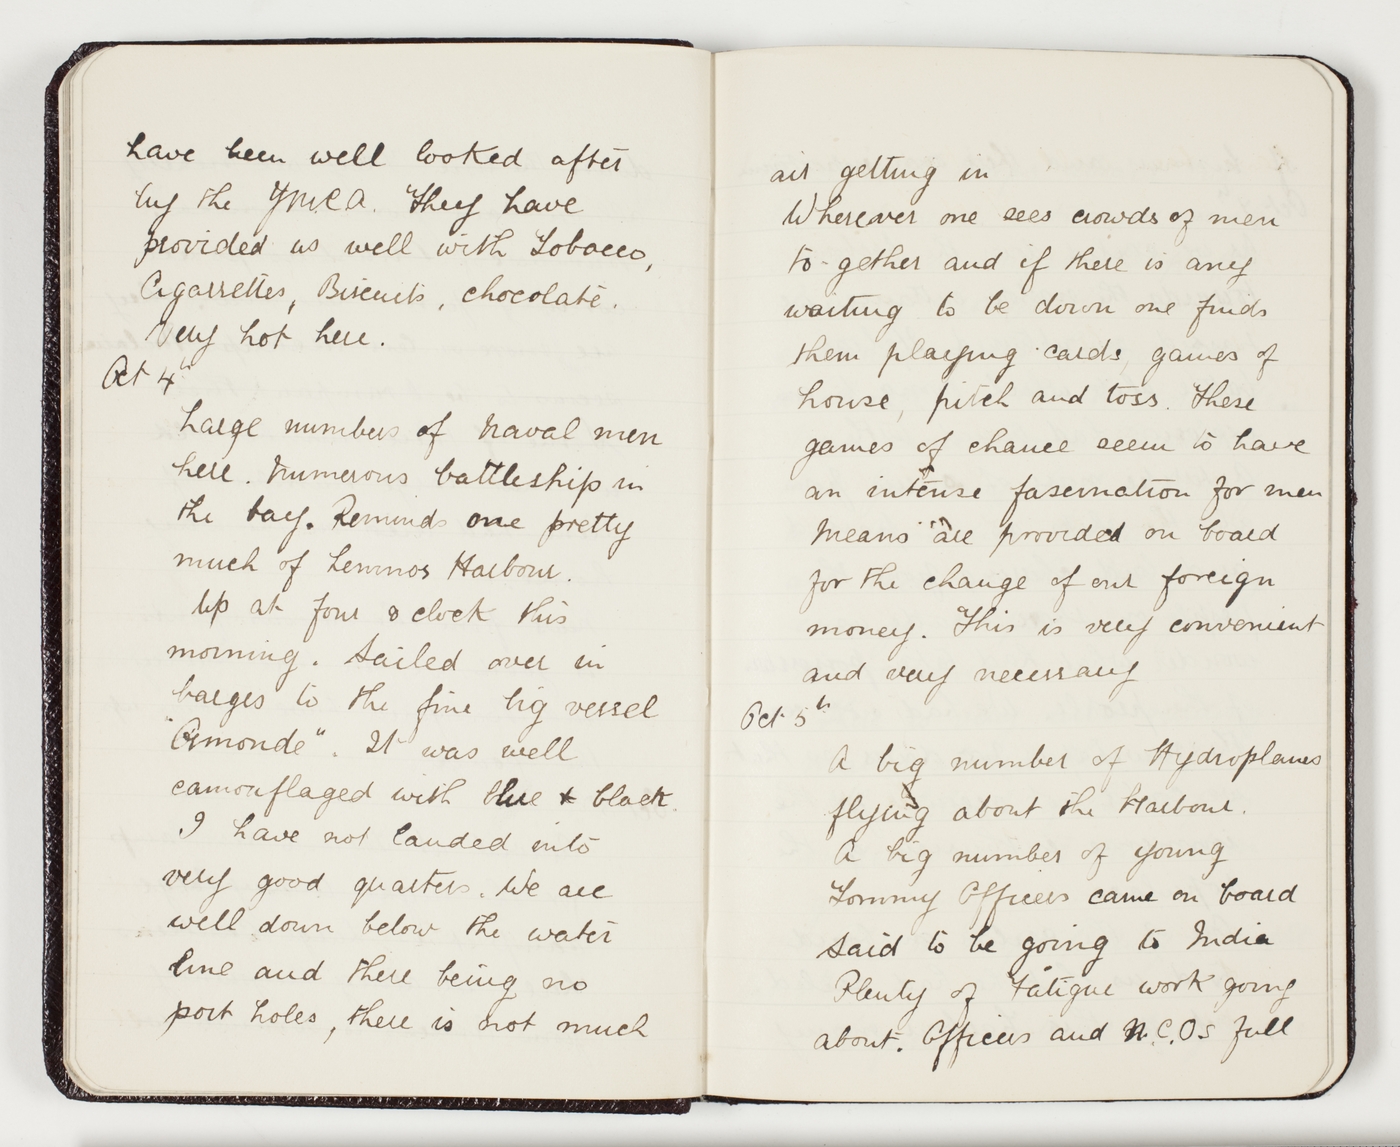 have been well looked after
by the YMCA. They have
provided us well with Tobacco,
Cigarrettes, Biscuits, chocolate.
Very hot here.
Oct 4th
Large numbers of Naval men
here. Numerous battleship in
the bay. Reminds one pretty
much of Lemnos Harbour.
Up at four o clock this
morning. Sailed over in
barges to the fine big vessel
"Ormonde". It was well
camouflaged with blue & black.
I have not landed into
very good quarters. We are
well down below the water
line and there being no
port holes, there is not much
air getting in
Wherever one sees crowds of men
to-gether and if there is any
waiting to be down one finds
them playing cards, games of
house, pitch and toss. These
games of chance seem to have
an intense fasernation for men
Means are provided on board
for the change of our foreign
money. This is very convenient
and very necessary
Oct 5th
A big number of Hydroplanes
flying about the Harbour.
A big number of young
Tommy Officers came on board
said to be going to India
Plenty of Fatigue work going
about. Officers and N.C.Os full